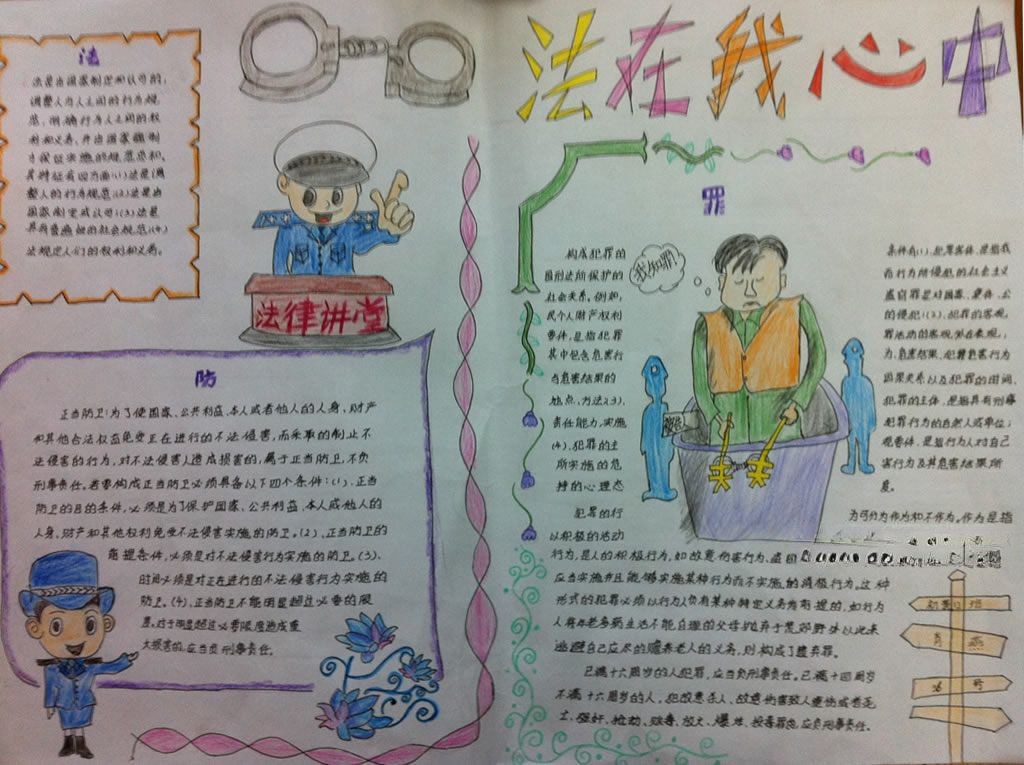 法在我心中
法
法是由国家制定和认可的,
调整人与人之间的行为规
范,明确行为人之间的权
利和义务,并由国家强制
力保证实施的规范总和,
其特征有四方面(1)法是调
整人的行为规范(2)法是由
国家制定或认可(3)法是
具有普遍性的社会规范(4)
法规定人们的权利和义务。
法律讲堂
防
正当防卫:为了使国家、公共利益、本人或者他人的人身,财产
和其他合法权益免受正在进行的不法侵害,而采取的制止不
法侵害的行为,对不法侵害人造成损害的,属于正当防卫,不负
刑事责任。若要构成正当防卫必须具备以下四个条件:(1)、正当
防卫的目的条件,必须是为了保护国家、公共利益、本人或他人的
人身、财产和其他权利免受不法侵害实施的防卫。(2)、正当防卫的
前提条件,必须是对不法侵害行为实施的防卫。(3)、
时间必须是对正在进行的不法侵害行为实施的
防卫。(4)、正当防卫不能明显超过必要的限
度,对于明显超过必要限度造成重
大损害的,应当负刑事责任。
罪
我知罪!
构成犯罪的
国刑法所保护的
社会关系。例如,
民个人财产权利
要件,是指犯罪
其中包含危害行
当危害结果的
地点、方法(3)、
责任能力,实施
(4)、犯罪的主
所实施的危
持的心理态
条件有(1)、犯罪客体,是指我
而行为所侵犯的社会主义
盗窃罪是对国家、集体、公
的侵犯!(2)、犯罪的客观
罪活动的客观外在表现,
为、危害结果、犯罪危害行为
因果关系以及犯罪的时间、
犯罪的主体,是指具有刑事
犯罪行为的自然人或单位;
观要件,是指行为人对自己
害行为及其危害结果所
犯罪的行
为可分为作为和不作为。作为是指
以积极的活动
行为,是人的积极行为,如故意伤害行为、盗国
应当实施并且能够实施某种行为而不实施的消极行为,这种
形式的犯罪必须以行为人负有某种特定义务为前提的,如行为
人将年老多病生活不能自理的父母抛弃于荒郊野外以此来
逃避自己应尽的赡养老人的义务,则构成了遗弃罪。
已满十六周岁的人犯罪,应当负刑事责任。已满十四周岁
不满十六周岁的人,犯故意杀人、故意伤害致人重伤或者死
亡、强奸、抢劫、贩毒、放火、爆炸、投毒罪的,应负刑事责任。